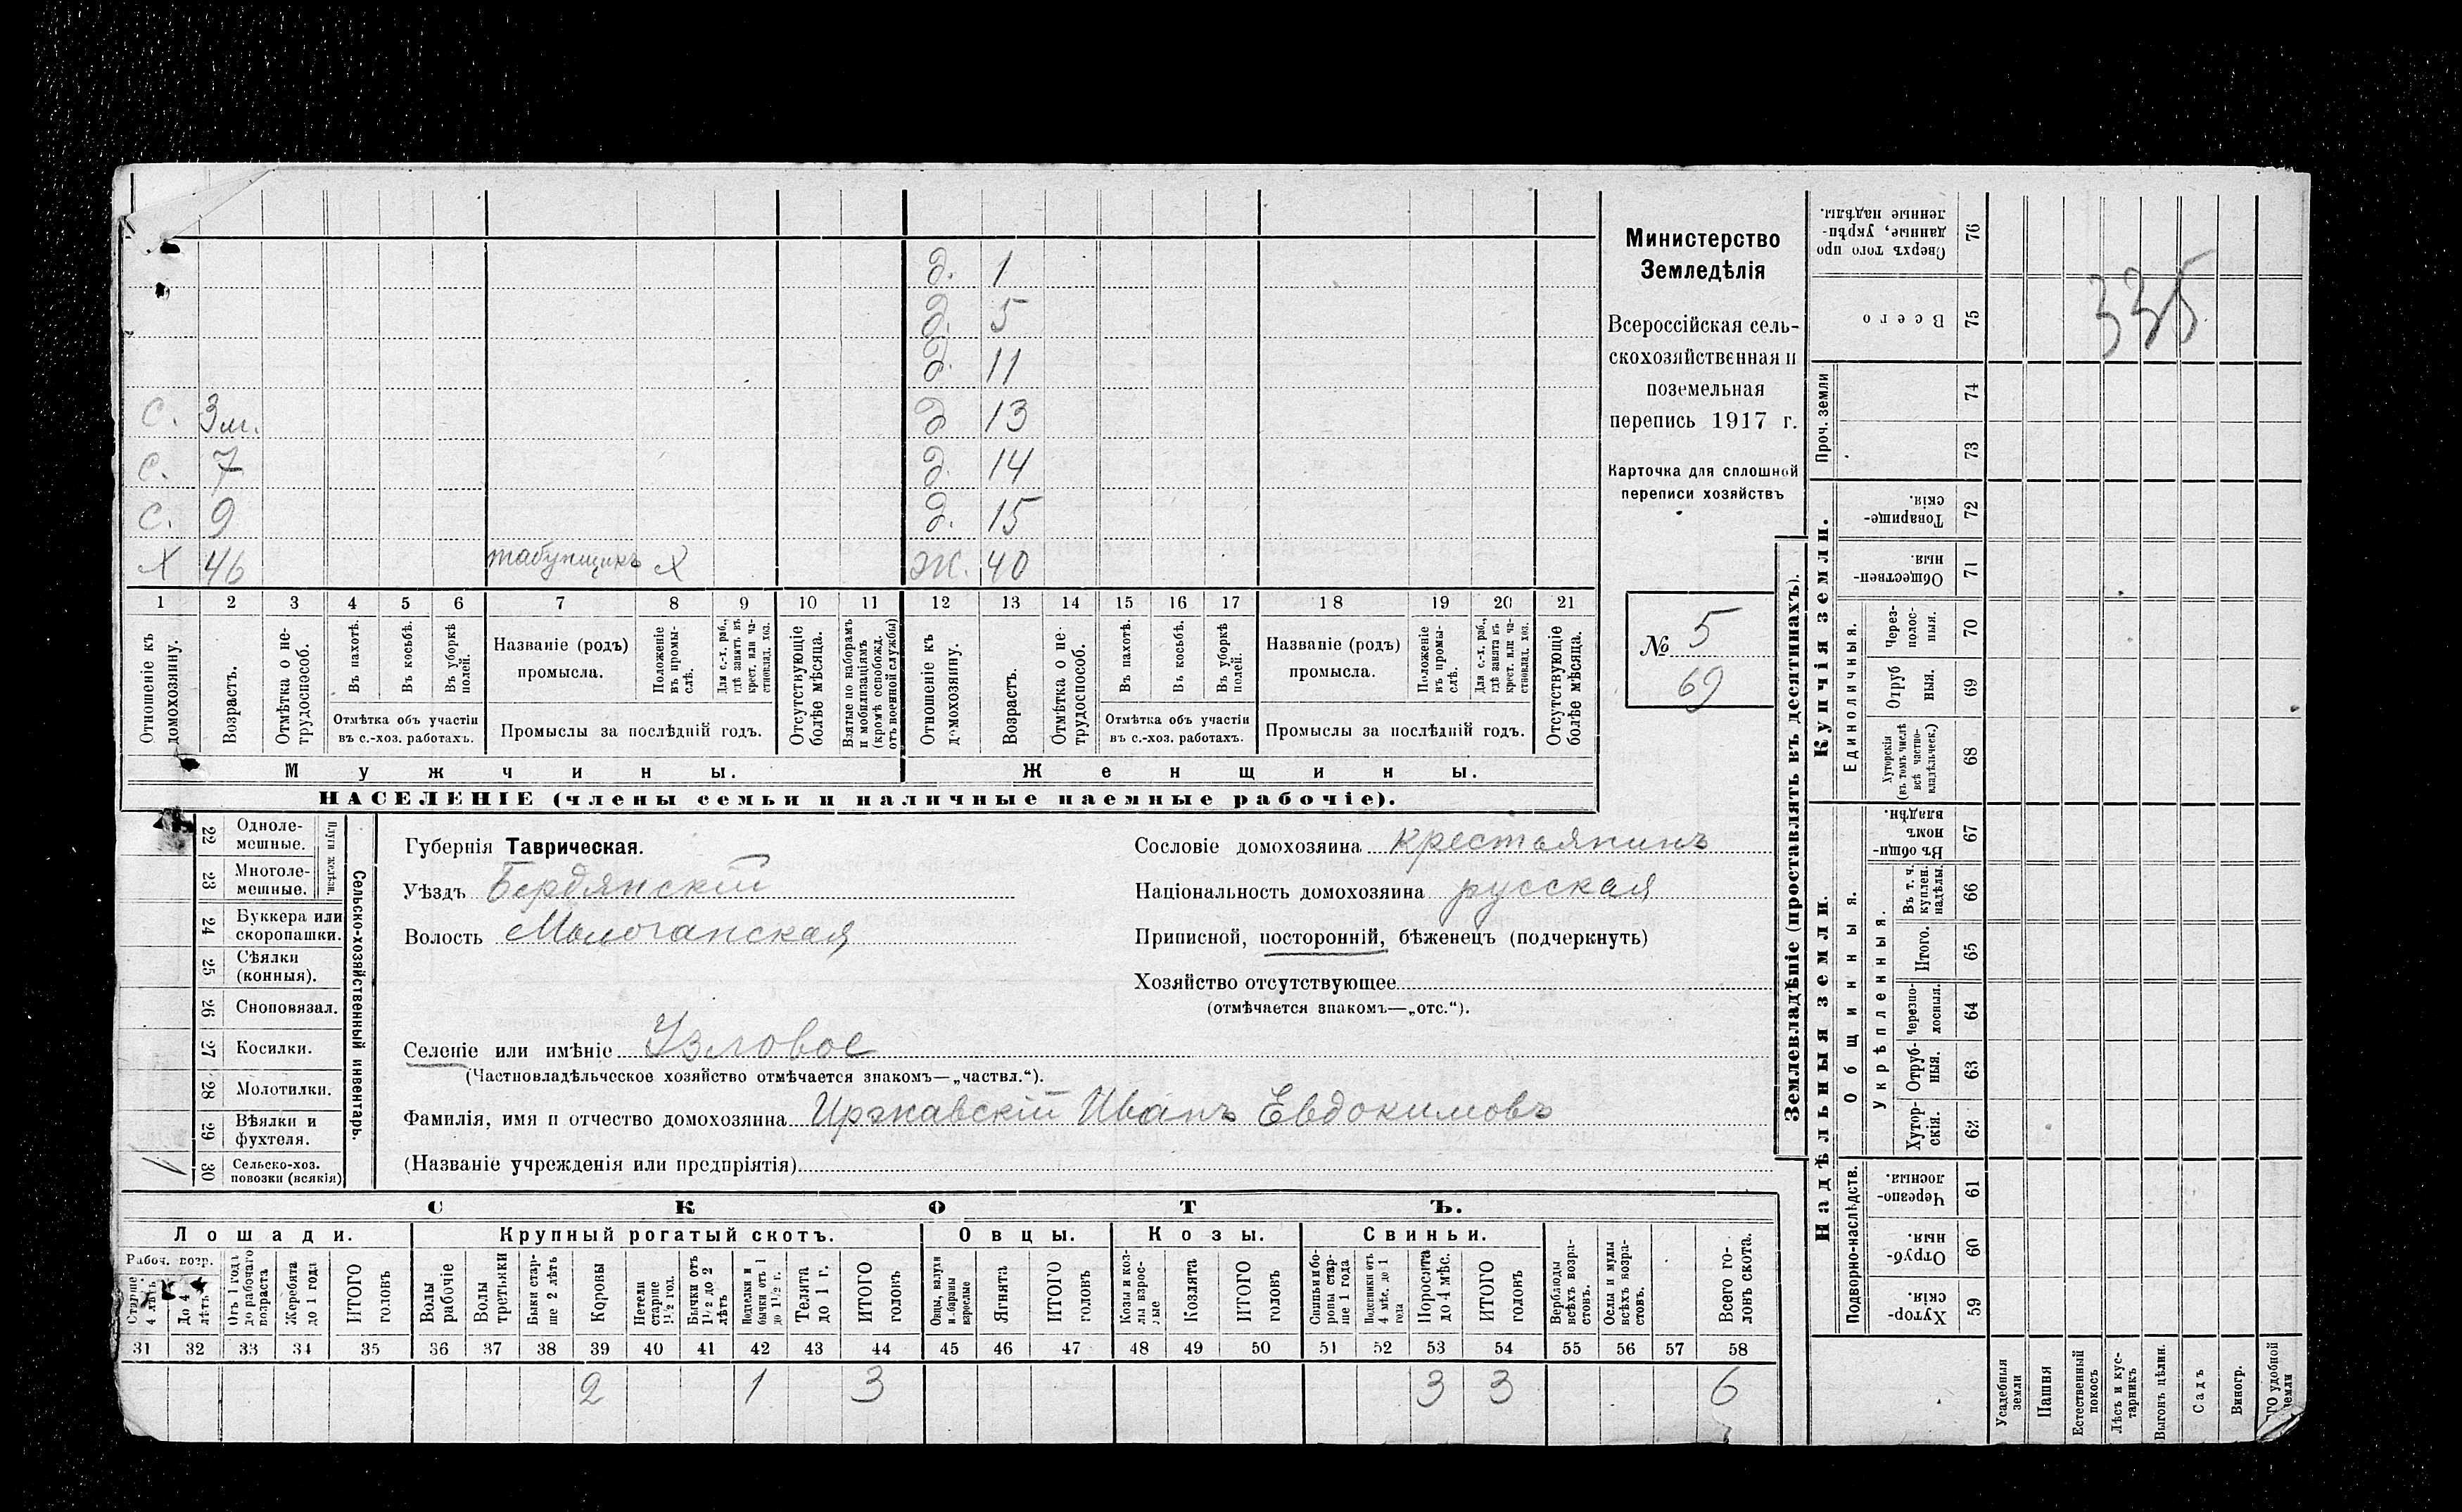 д. 1
д. 5
д. 11
с. 3 м. д 13
с. 7 д. 14
с. 9 д. 15
х 46 табунщикъ х ж. 40
1 2 3 4 5 6 7 8 9 10 11 12 13 14 15 16 17 18 19 20 21
Отношеніе къ домохозяину.
Возрастъ.
Отмѣтка о не-
трудоспособ.
Въ пахотѣ.
Въ косьбѣ.
Въ уборкѣ
полей.
Отмѣтка объ участіи
въ с.-хоз. работахъ.
Названіе (родъ)
промысла.
Положеніе
въ промы-
слѣ.
Для с.-х. раб.,
гдѣ занятъ въ
крест. или ча-
стновлад. хоз.
Промыслы за послѣдній годъ.
Отсутствующіе
болѣе мѣсяца.
Взятые по наборамъ
и мобилизаціямъ
(кромѣ освобожд.
отъ военной службы)
Отношеніе къ
домохозяину.
Возрастъ.
Отмѣтка о не-
трудоспособ.
Въ пахотѣ.
Въ косьбѣ.
Въ уборкѣ
полей.
Отмѣтка объ участіи
въ с.-хоз. работахъ.
Названіе (родъ)
промысла.
Положеніе
въ промы-
слѣ.
Для с.-х. раб.,
гдѣ занята въ
крест. или ча-
стновлад. хоз.
Промыслы за послѣдній годъ.
Отсутствующіе
болѣе мѣсяца.
Мужчины. Женщины.
НАСЕЛЕНІЕ (члены семьи и наличные наемные рабочіе).
Министерство
Земледѣлія
Всероссійская сель-
скохозяйственная и
поземельная
перепись 1917 г.
Карточка для сплошной
переписи хозяйствъ
№ 5
69
22 Одноле-
мешные.
23 Многоле-
мешные.
Плуги желѣзн.
24 Буккера или
скоропашки.
25 Сѣялки
(конныя).
26 Сноповязал.
27 Косилки.
28 Молотилки.
29 Вѣялки и
фухтеля.
30 Сельско-хоз.
повозки (всякія)
1
Сельско-хозяйственный инвентарь.
Губернія Таврическая.
Уѣздъ Бердянскій
Волость Молочанская
Сословіе домохозяина крестьянинъ
Національность домохозяина русская
Приписной, посторонній, бѣженецъ (подчеркнуть)
Хозяйство отсутствующее
(отмѣчается знакомъ—„отс.“).
Селеніе или имѣніе Узловое
(Частновладѣльческое хозяйство отмѣчается знакомъ—„частвл.“).
Фамилія, имя и отчество домохозяина Иржавскій Иванъ Евдокимовъ
(Названіе учрежденія или предпріятія)
СКОТЪ.
Лошади. Крупный рогатый скотъ. Овцы. Козы. Свиньи.
Рабоч. возр.
Старше
4 лѣтъ
До 4
лѣтъ
Отъ 1 года
до рабочаго
возраста
Жеребята
до 1 года
ИТОГО
головъ
Волы
рабочіе
Волы
третьяки
Быки стар-
ше 2 лѣтъ
Коровы
Нетели
старше
1½ год.
Бычки отъ
1½ до 2
лѣтъ
Подтелки и
бычки отъ 1
до 1½ г.
Телята
до 1 г.
ИТОГО
головъ
Овцы, валухи
и бараны
взрослые
Ягнята
ИТОГО
головъ
Козы и коз-
лы взрос-
лые
Козлята
ИТОГО
головъ
Свиньи и бо-
ровы стар-
ше 1 года
Подсвинки отъ
4 мѣс. до 1
года
Поросята
до 4 мѣс.
ИТОГО
головъ
Верблюды
всѣхъ возра-
стовъ.
Ослы и мулы
всѣхъ возра-
стовъ.
Всего го-
ловъ скота.
31 32 33 34 35 36 37 38 39 40 41 42 43 44 45 46 47 48 49 50 51 52 53 54 55 56 57 58
2 1 3 3 3 6
Землевладѣніе (проставлять въ десятинахъ).
Надѣльныя земли. Купчія земли.
Проч. земли
Подворно-наслѣдств.
Общинныя.
Укрѣпленныя.
Единоличныя.
Сверхъ того про
данные, укрѣп-
ленные надѣлы. 76
Всего 75
335
74
73
Товарище-
скія. 72
Обществен-
ныя. 71
Через-
полос-
ныя. 70
Отруб
ныя. 69
Хуторскія
(въ томъ числѣ
всѣ частно-
владѣльческ.) 68
Въ общи-
номъ
владѣн. 67
Въ т. ч.
куплен.
надѣлы. 66
Итого. 65
Черезпо-
лосныя. 64
Отруб-
ныя. 63
Хутор-
скія. 62
Черезпо-
лосныя. 61
Отруб-
ныя. 60
Хутор-
скія. 59
Усадебныя
земли
Пашня
Естественный
покосъ
Лѣсъ и кус-
тарникъ
Выгонъ цѣлин.
Садъ
Виногр.
ГО удобной
земли